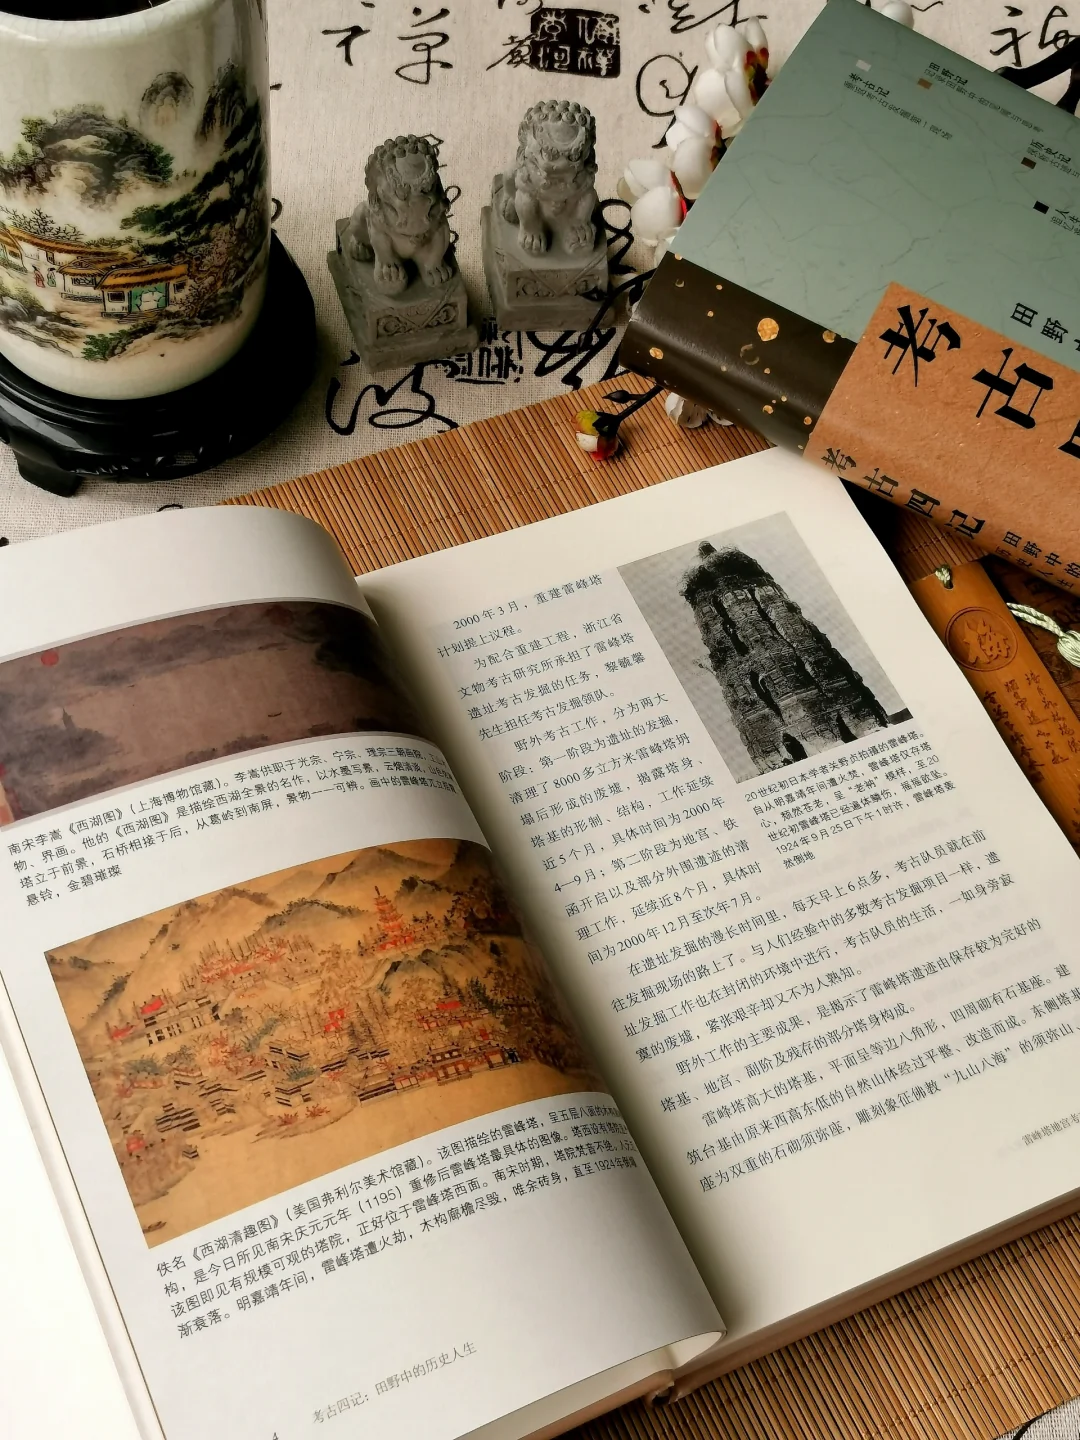 禅
考古记
田野记
历史记
人生
考古
田野中
考古四记
田野中的
历史
梅
南宋李嵩《西湖图》（上海博物馆藏）。李嵩供职于光宗、宁宗、理宗三朝画院，
物、界画。他的《西湖图》是描绘西湖全景的名作，以水墨写景，云烟清淡，
塔立于前景，石桥相接于后，从葛岭到南屏，景物一一可辨。画中的雷峰塔
悬铃，金碧璀璨
佚名《西湖清趣图》（美国弗利尔美术馆藏）。该图描绘的雷峰塔，呈五层八面的
构，是今日所见南宋庆元元年（1195）重修后雷峰塔最具体的图像。塔西设有塔院
该图即见有规模可观的塔院，正好位于雷峰塔西面。南宋时期，塔院梵音不绝，
渐衰落。明嘉靖年间，雷峰塔遭火劫，木构廊檐尽毁，唯余砖身，直至1924年
考古四记：田野中的历史人生
4
2000年3月，重建雷峰塔
计划提上议程。
为配合重建工程，浙江省
文物考古研究所承担了雷峰塔
遗址考古发掘的任务，黎毓馨
先生担任考古发掘领队。
野外考古工作，分为两大
阶段：第一阶段为遗址的发掘，
清理了8000多立方米雷峰塔坍
塌后形成的废墟，揭露塔身、
塔基的形制、结构，工作延续
近5个月，具体时间为2000年
4—9月；第二阶段为地宫、铁
函开启以及部分外围遗迹的清
理工作，延续近8个月，具体时
间为2000年12月至次年7月。
在遗址发掘的漫长时间里，每天早上6点多，考古队员就在前
往发掘现场的路上了。与人们经验中的多数考古发掘项目一样，遗
址发掘工作也在封闭的环境中进行，考古队员的生活，一如身旁寂
寞的废墟，紧张艰辛却又不为人熟知。
野外工作的主要成果，是揭示了雷峰塔遗迹由保存较为完好的
塔基、地宫、副阶及残存的部分塔身构成。
雷峰塔高大的塔基，平面呈等边八角形，四周前有石基座。建
筑台基由原来西高东低的自然山体经过平整、改造而成。东侧塔基
座为双重的石砌须弥座，雕刻象征佛教“九山八海”的须弥山、
20世纪初日本学者关野贞拍摄的雷峰塔。
自从明嘉靖年间遭火焚，雷峰塔仅存塔
心，颓然苍老，呈“老衲”模样，至20
世纪初雷峰塔已经遍体鳞伤，摇摇欲坠。
1924年9月25日下午1时许，雷峰塔轰
然倒地
雷峰塔地宫考